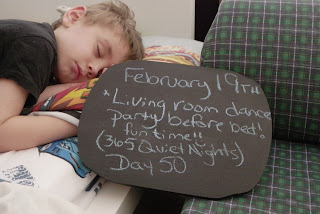 February 19TH
*Living room dance
party before bed!
fun time!!
(365 Quiet Nights)
Day 50